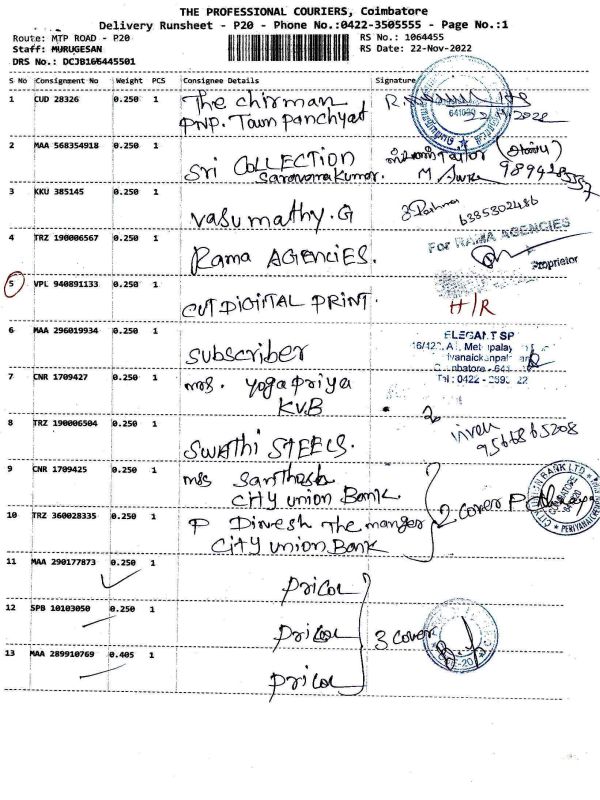 THE PROFESSIONAL COURIERS, Coimbatore
Delivery Runsheet - P20 - Phone No.:0422-3505555 - Page No.:1
Route: MTP ROAD - P20
RS No.: 1064455
Staff: MURUGESAN
RS Date: 22-Nov-2022
DRS No.: DCJB166445501
S No Consignment No Weight PCS Consignee Details Signature
1 CUD 28326 0.250 1 The chirman
PNP. Town Panchyat
641020
2 MAA 568354918 0.250 1 Sri COLLECTION
Saravanakumar.
3 KKU 385145 0.250 1 Vasumathy.G
6385302486
4 TRZ 190006567 0.250 1 Rama AGENCIES.
For RAMA AGENCIES
Proprietor
5 VPL 940891133 0.250 1 CUT DIGITAL PRINT. H/R
6 MAA 296019934 0.250 1 Subscriber
ELEGANT SP
Tel : 0422 -
7 CNR 1709427 0.250 1 mrs. Yogapriya
KVB
8 TRZ 190006504 0.250 1 SWATHI STEELS.
9566865208
9 CNR 1709425 0.250 1 mss Santhosh
CITY UNION Bank
2 cover
10 TRZ 360028335 0.250 1 P Dinesh The manger
CITY UNION Bank
11 MAA 290177873 0.250 1 Pricol
12 SPB 10103050 0.250 1 Pricol
3 cover
13 MAA 289910769 0.405 1 Pricol